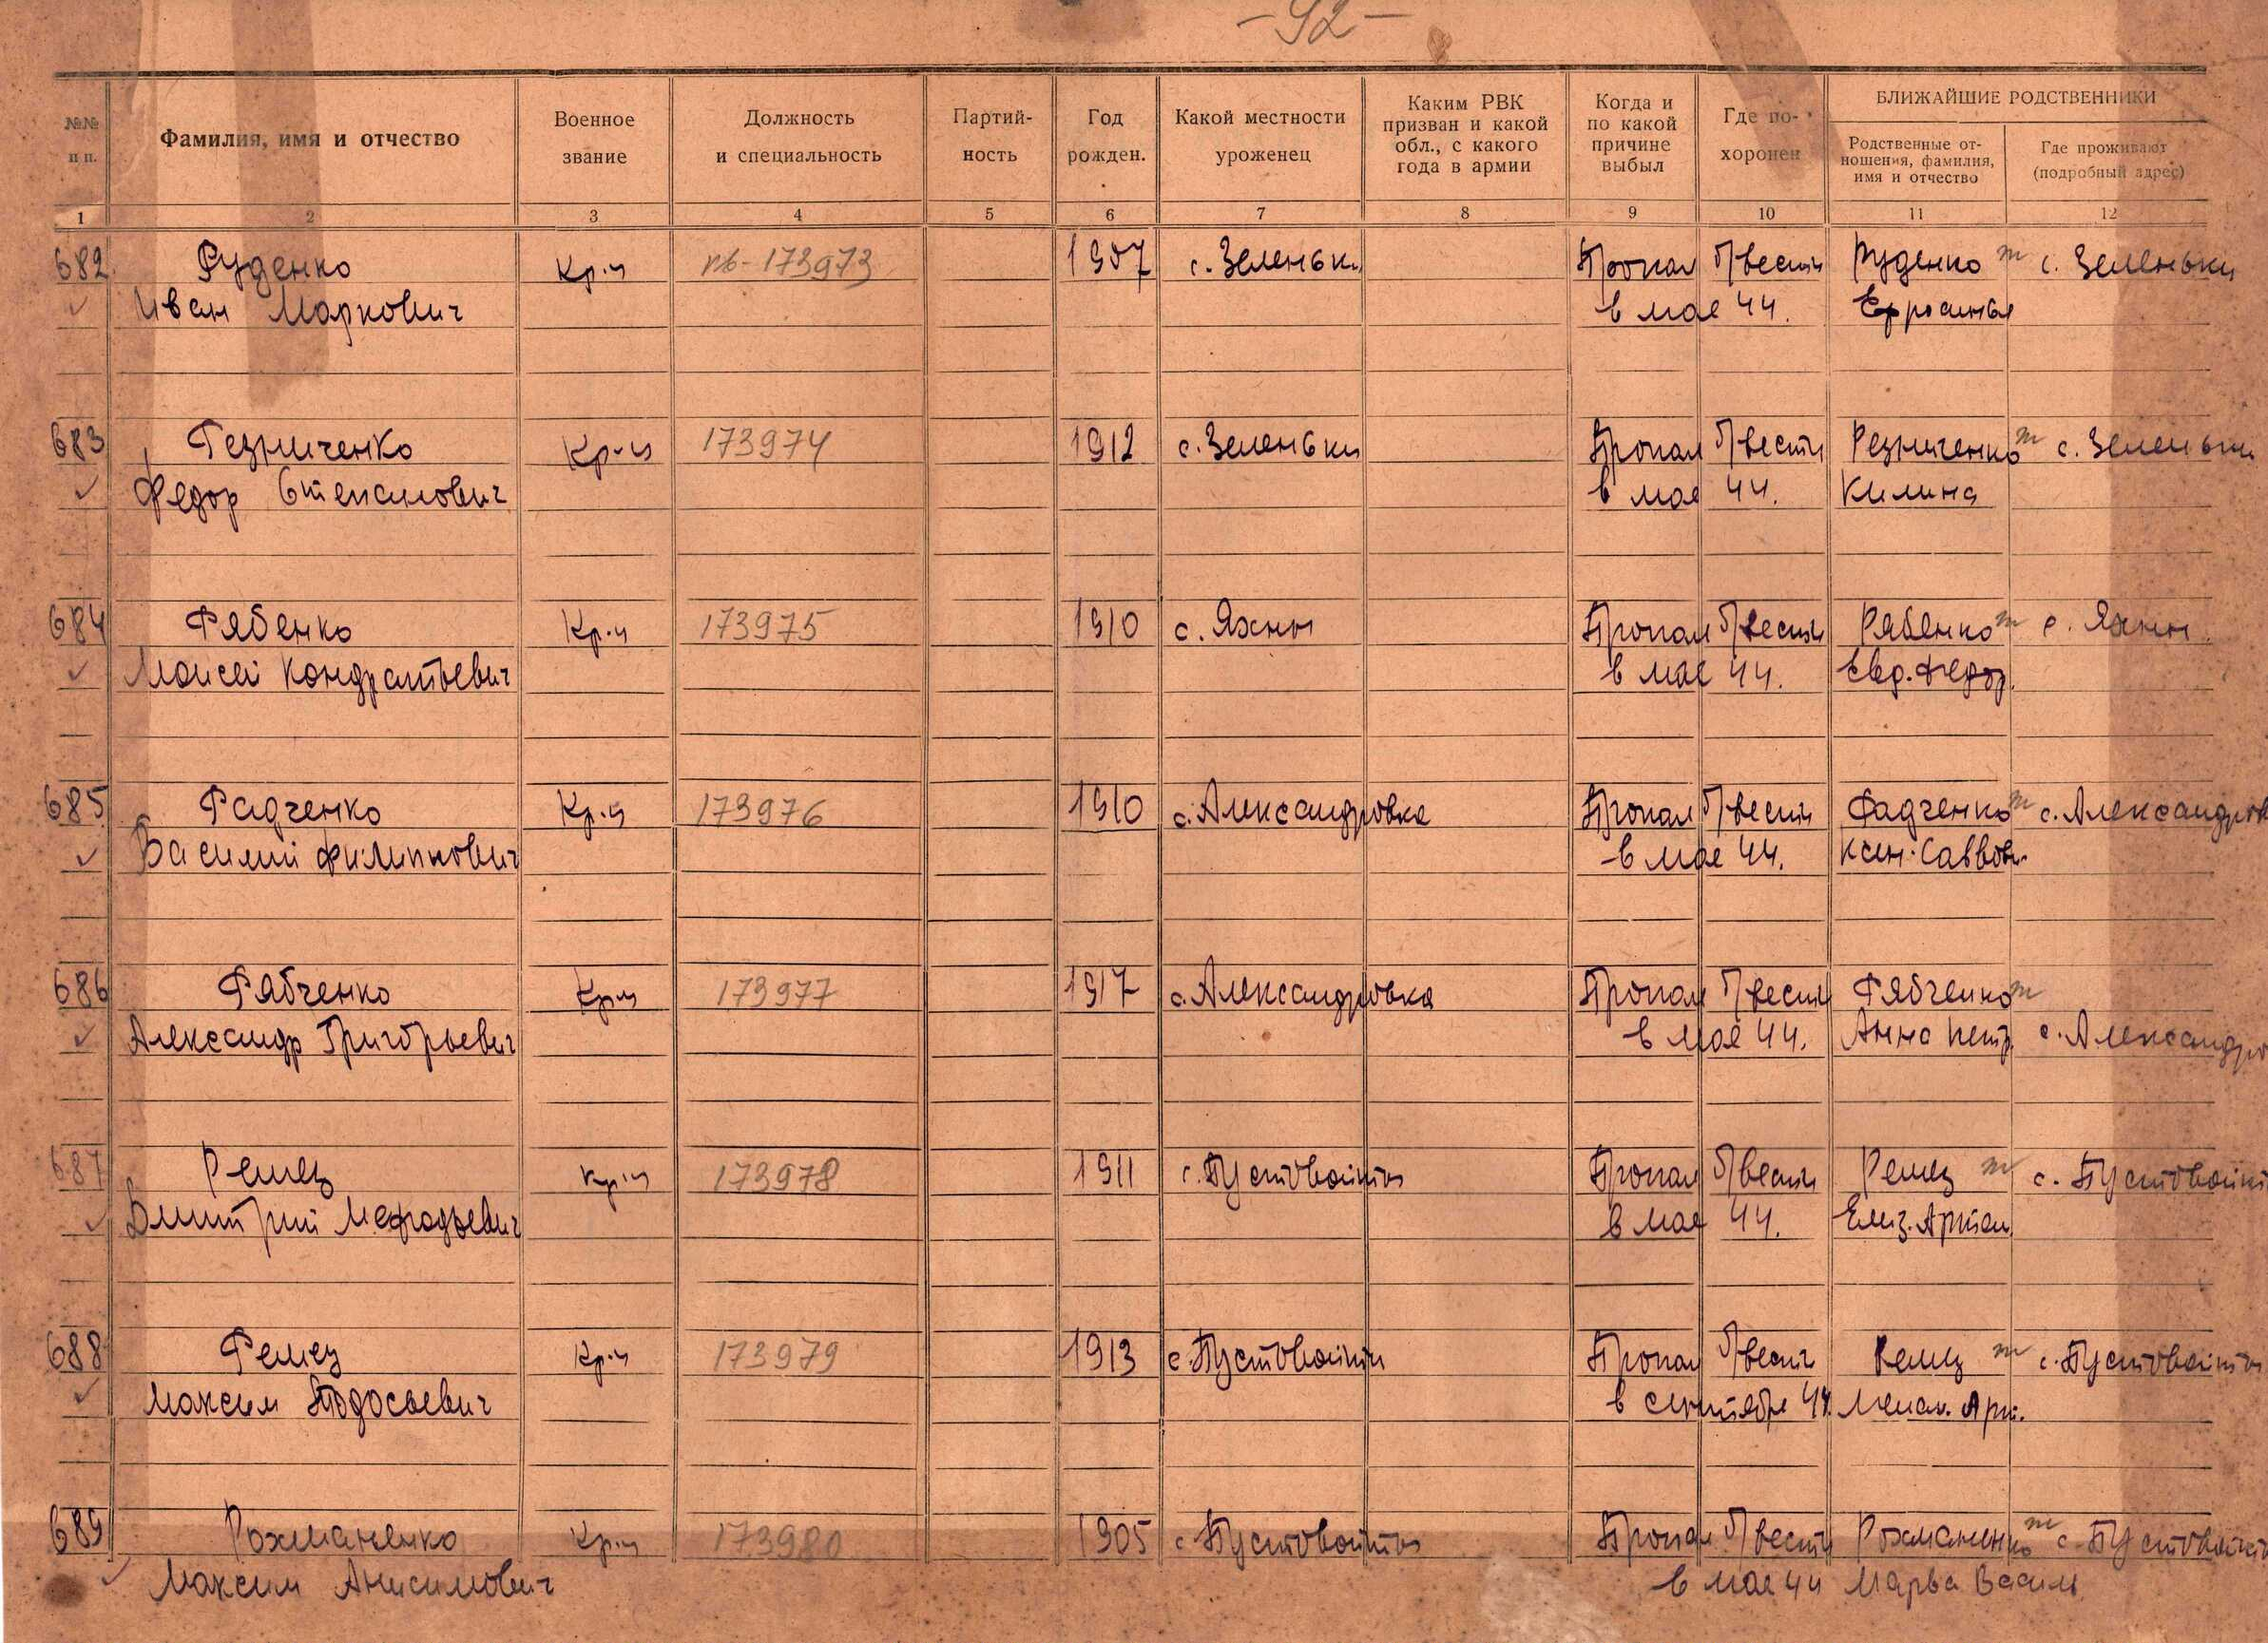 - 92 -
№№ п п.
Фамилия, имя и отчество
Военное звание
Должность и специальность
Партий-ность
Год рожден.
Какой местности уроженец
Каким РВК призван и какой обл., с какого года в армии
Когда и по какой причине выбыл
Где по-хоронен
БЛИЖАЙШИЕ РОДСТВЕННИКИ
Родственные от-ношения, фамилия, имя и отчество
Где проживают (подробный адрес)
1 2 3 4 5 6 7 8 9 10 11 12
682 Руденко Кр-ц пб-173973 1907 с. Зеленьки Пропал б/вести Руденко с. Зеленьки
Иван Маркович в мае 44. Ефросинья
683 Резниченко Кр-ц 173974 1912 с. Зеленьки Пропал б/вести Резниченко с. Зеленьки
Федор Степанович в мае 44. Килина
684 Рябенко Кр-ц 173975 1910 с. Яхны Пропал б/вести Рябенко с. Яхны
Моисей Кондратьевич в мае 44. Евд. Федор.
685 Радченко Кр-ц 173976 1910 с. Александровка Пропал б/вести Радченко с. Александров
Василий Филиппович в мае 44. Ксен. Саввов.
686 Рябченко Кр-ц 173977 1917 с. Александровка Пропал б/вести Рябченко
Александр Григорьевич в мае 44. Анна Петр. с. Александро
687 Ремез Кр-ц 173978 1911 с. Пустовойты Пропал б/вести Ремез с. Пустовойт
Дмитрий Мефодьевич в мае 44. Елиз. Артем.
688 Ремез Кр-ц 173979 1913 с. Пустовойты Пропал б/вести Ремез с. Пустовойты
Максим Тодосьевич в сентябре 44. Мелан. Арт.
689 Рохманенко Кр-ц 173980 1905 с. Пустовойты Пропал б/вести Рохманенко с. Пустовойт
Максим Анисимович в мае 44 Марва Васил.